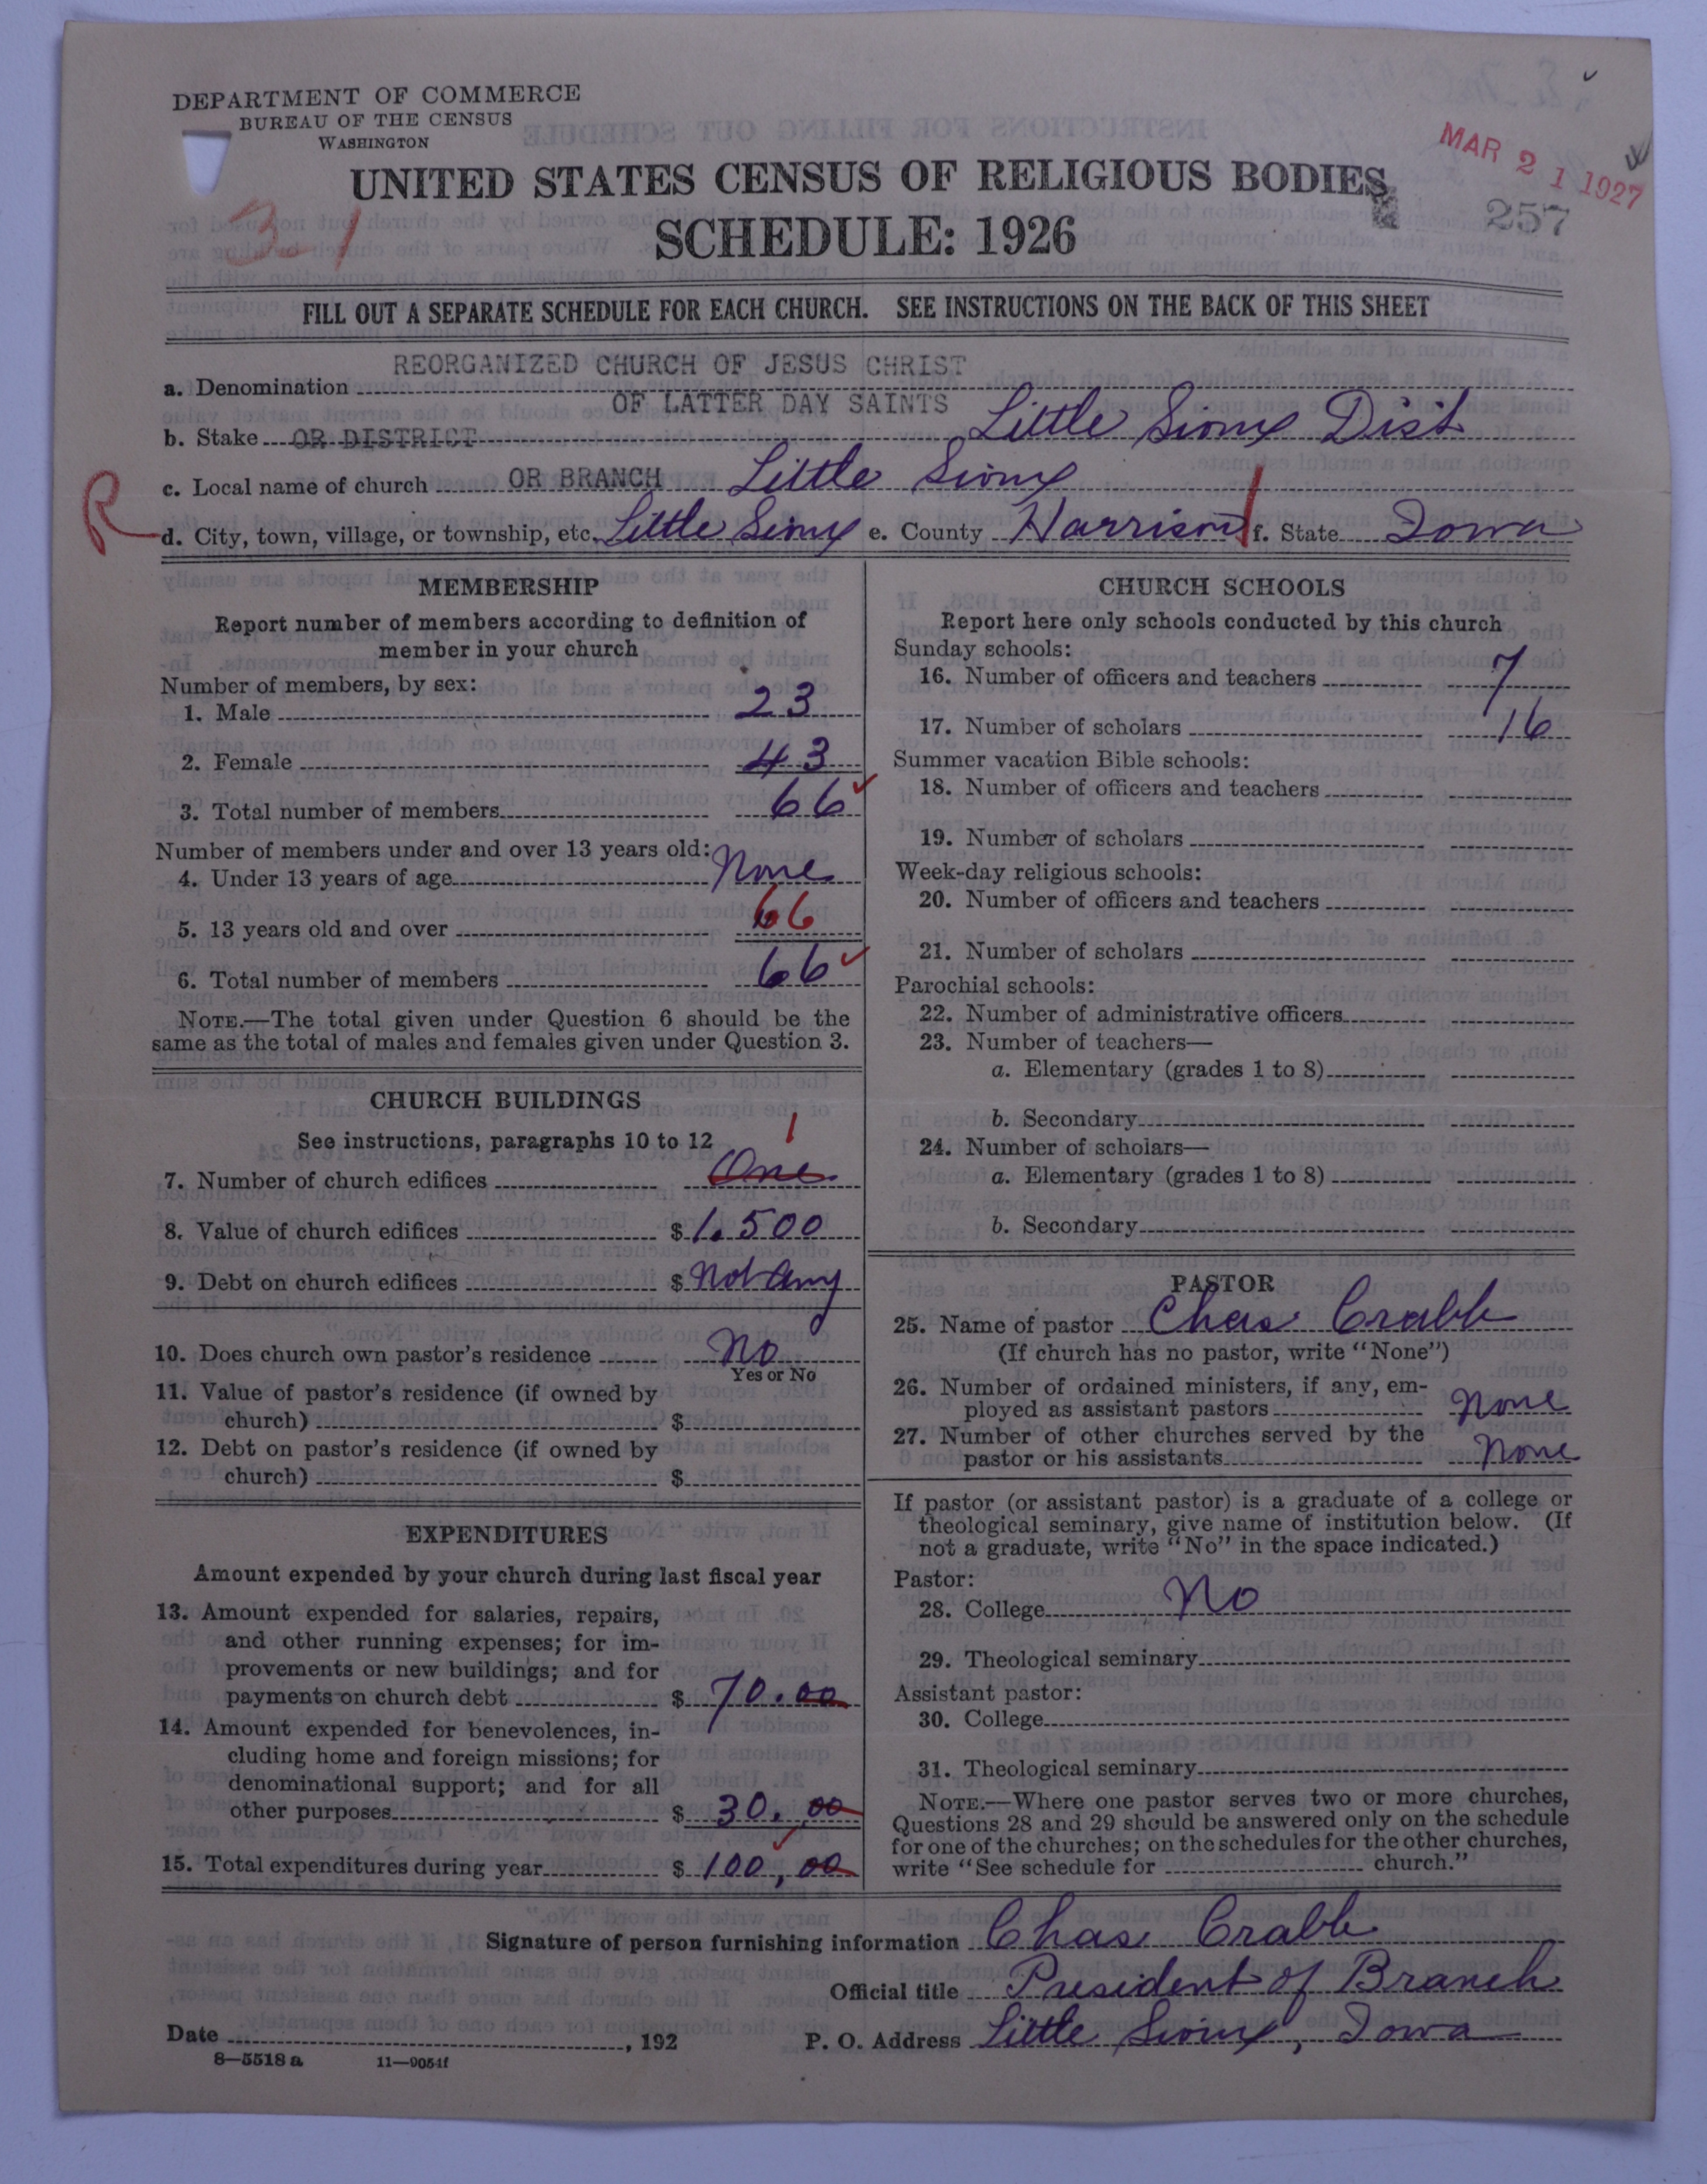 DEPARTMENT OF COMMERCE
BUREAU OF THE CENSUS
WASHINGTON
MAR 21 1927
UNITED STATES CENSUS OF RELIGIOUS BODIES
257
3-1
SCHEDULE: 1926
FILL OUT A SEPARATE SCHEDULE FOR EACH CHURCH. SEE INSTRUCTIONS ON THE BACK OF THIS SHEET
REORGANIZED CHURCH OF JESUS CHRIST
a. Denomination
OF LATTER DAY SAINTS
b. Stake OR DISTRICT Little Sioux Dist
c. Local name of church OR BRANCH Little Sioux
R
d. City, town, village, or township, etc. Little Sioux e. County Harrison f. State Iowa
MEMBERSHIP
Report number of members according to definition of
member in your church
Number of members, by sex:
1. Male 23
2. Female 43
3. Total number of members 66
Number of members under and over 13 years old:
4. Under 13 years of age None
5. 13 years old and over 66
6. Total number of members 66
NOTE.—The total given under Question 6 should be the
same as the total of males and females given under Question 3.
CHURCH BUILDINGS
See instructions, paragraphs 10 to 12
1
7. Number of church edifices One
8. Value of church edifices $ 1.500
9. Debt on church edifices $ Not any
10. Does church own pastor's residence No
Yes or No
11. Value of pastor's residence (if owned by
church) $
12. Debt on pastor's residence (if owned by
church) $
EXPENDITURES
Amount expended by your church during last fiscal year
13. Amount expended for salaries, repairs,
and other running expenses; for im-
provements or new buildings; and for
payments on church debt $ 70.00
14. Amount expended for benevolences, in-
cluding home and foreign missions; for
denominational support; and for all
other purposes $ 30.00
15. Total expenditures during year $ 100,00
CHURCH SCHOOLS
Report here only schools conducted by this church
Sunday schools:
16. Number of officers and teachers 7
17. Number of scholars 16
Summer vacation Bible schools:
18. Number of officers and teachers
19. Number of scholars
Week-day religious schools:
20. Number of officers and teachers
21. Number of scholars
Parochial schools:
22. Number of administrative officers
23. Number of teachers—
a. Elementary (grades 1 to 8)
b. Secondary
24. Number of scholars—
a. Elementary (grades 1 to 8)
b. Secondary
PASTOR
25. Name of pastor Chas Crabb
(If church has no pastor, write "None")
26. Number of ordained ministers, if any, em-
ployed as assistant pastors None
27. Number of other churches served by the
pastor or his assistants None
If pastor (or assistant pastor) is a graduate of a college or
theological seminary, give name of institution below. (If
not a graduate, write "No" in the space indicated.)
Pastor:
28. College No
29. Theological seminary
Assistant pastor:
30. College
31. Theological seminary
NOTE.—Where one pastor serves two or more churches,
Questions 28 and 29 should be answered only on the schedule
for one of the churches; on the schedules for the other churches,
write "See schedule for church."
Signature of person furnishing information Chas Crabb
Official title President of Branch
Date , 192 P. O. Address Little Sioux, Iowa
8—5518 a 11—9054f